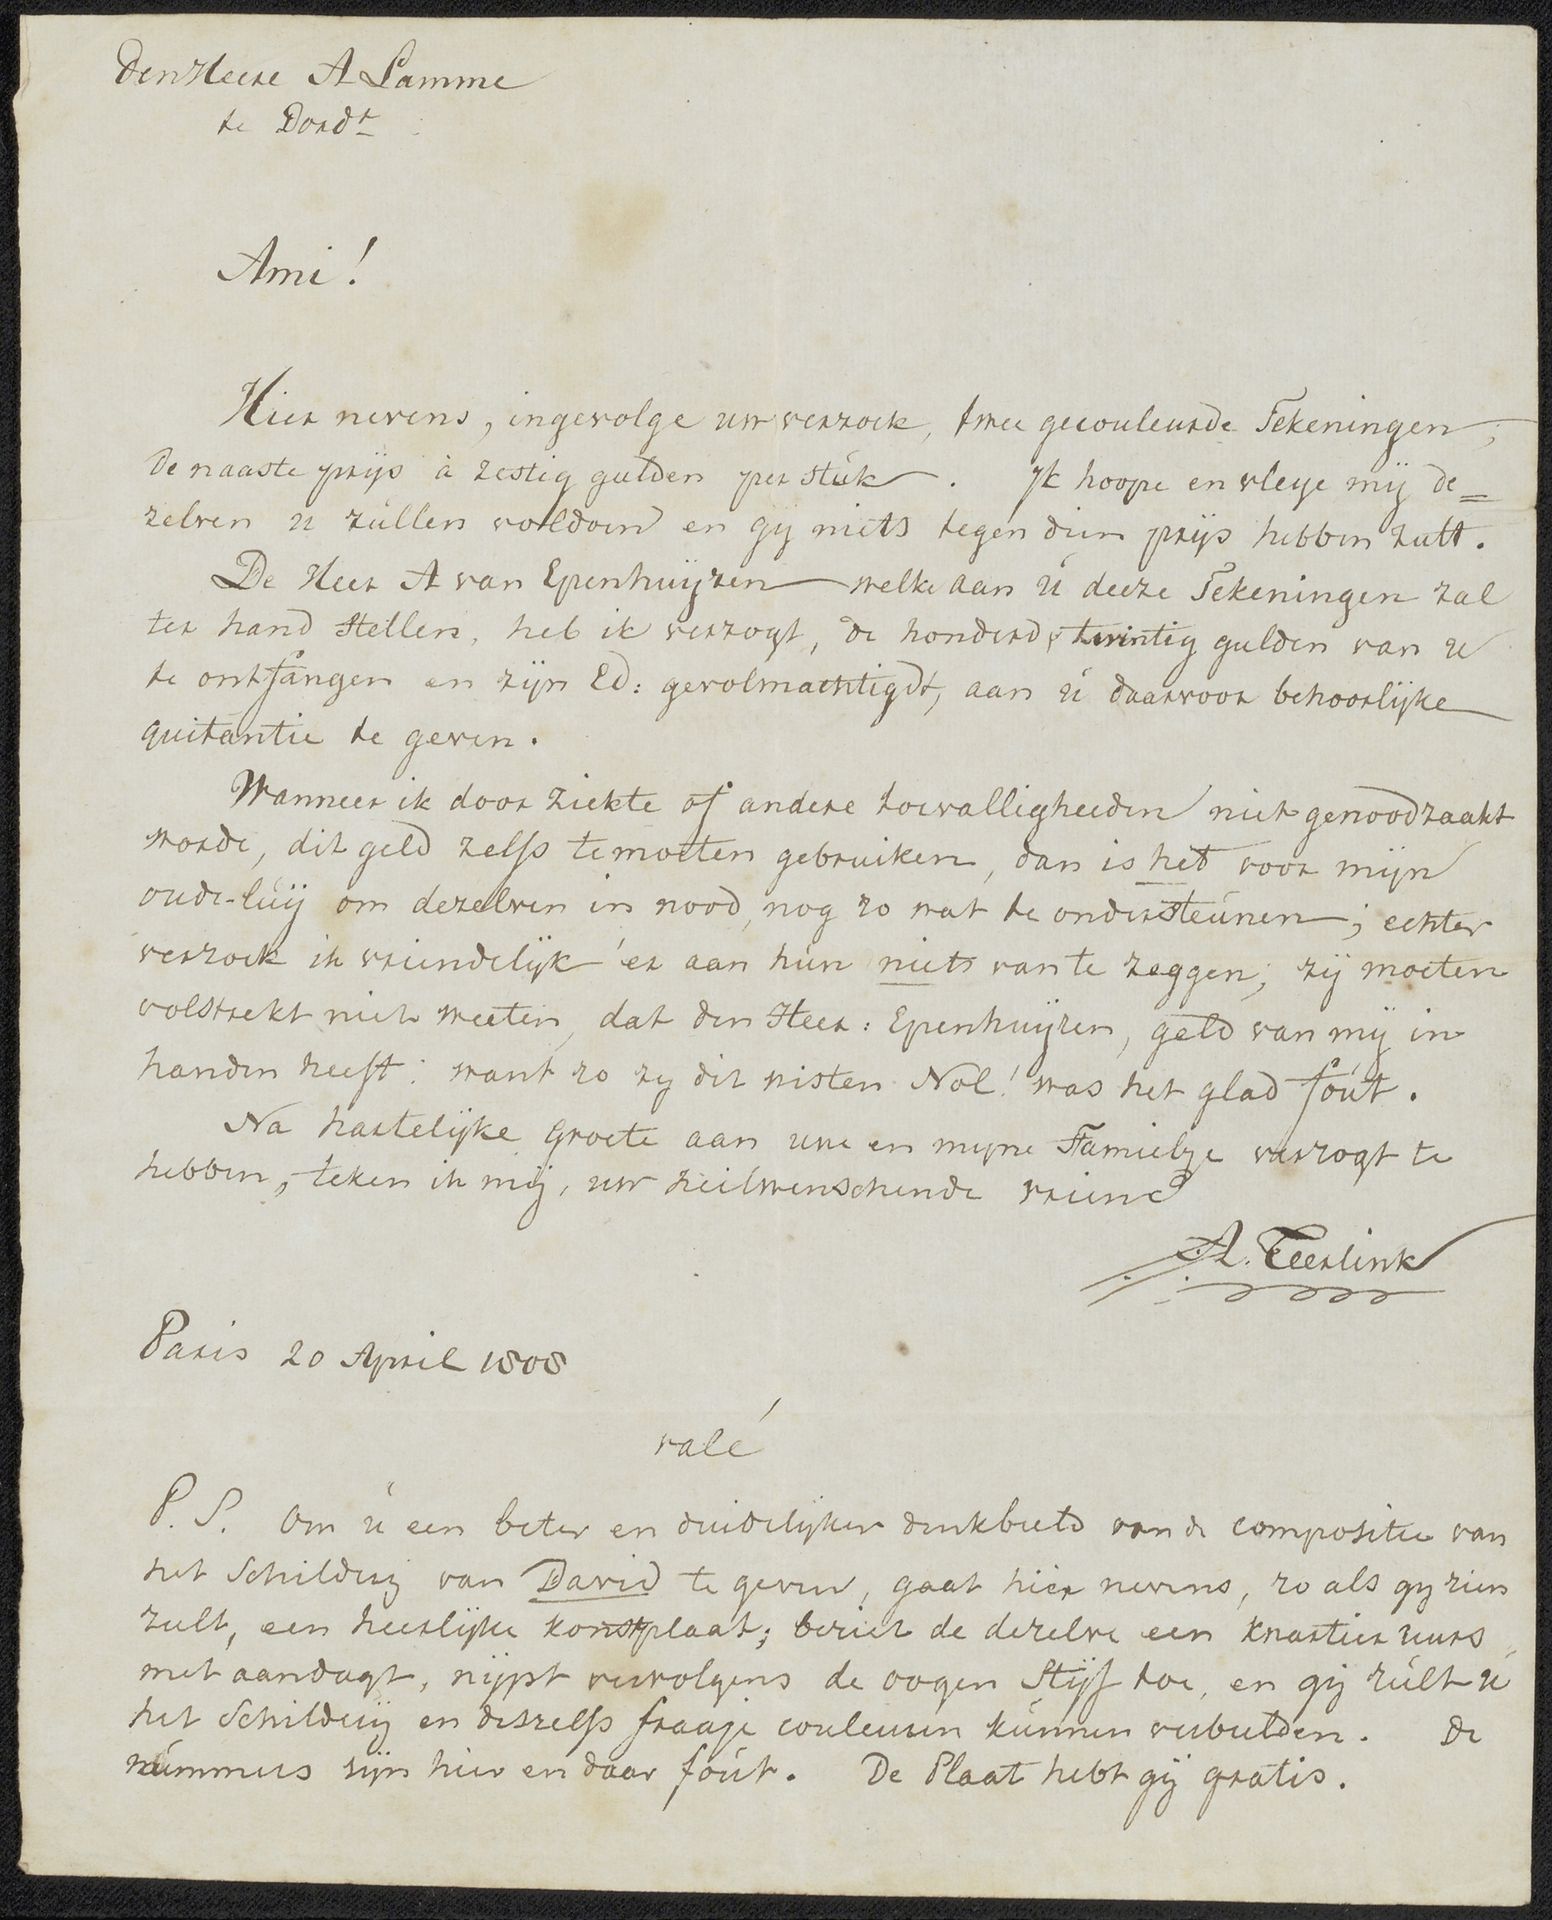 Den Heere A Lamme
te Dordt
Ami!
Hier nevens, ingevolge uw verzoek, twee gecouleurde Tekeningen,
de naaste prijs à zestig gulden per stúk. Ik hoope en vleye mij de=
zelven u zúllen voldoen en gy niets tegen dien prijs hebben zult.
De Heer A van Epenhuijzen welke aan ú deeze Tekeningen zal
ter hand stellen, heb ik verzogt, de honderd twintig gulden van u
te ontfangen en zijn Ed: gevolmachtigdt, aan ú daarvoor behoorlijke
quitantie te geven.
Wanneer ik door ziekte of andere toevalligheeden niet genoodzaakt
worde, dit geld zelfs te moeten gebruiken, dan is het voor mijn
oude-lúij om dezelven in nood, nog zo wat te ondersteúnen; echter
verzoek ik vriendelijk er aan hún niets van te zeggen, zij moeten
volstrekt niet weeten, dat den Heer: Epenhuijzen, geld van mij in
handen heeft: want zo zy dit wisten Nol! was het glad foút.
Na hartelijke groete aan uwe en myne Famielye verzogt te
hebben, teken ik mij, uw heilwenschende vriend
A. Teerlink
Paris 20 April 1808
valé
P.S. Om ú een beter en duidelijker denkbeeld van de compositie van
het Schilderij van David te geven, gaat hier nevens, zo als gy zien
zult, een heerlijke konstplaat; beziet de dezelve een kwartier uurs
met aandagt, nijpt vervolgens de oogen Stijf toe, en gij zúlt ú
het Schilderij en deszelfs fraaje couleuren kúnnen verbeelden. De
númmers zijn hier en daar foút. De Plaat hebt gij gratis.